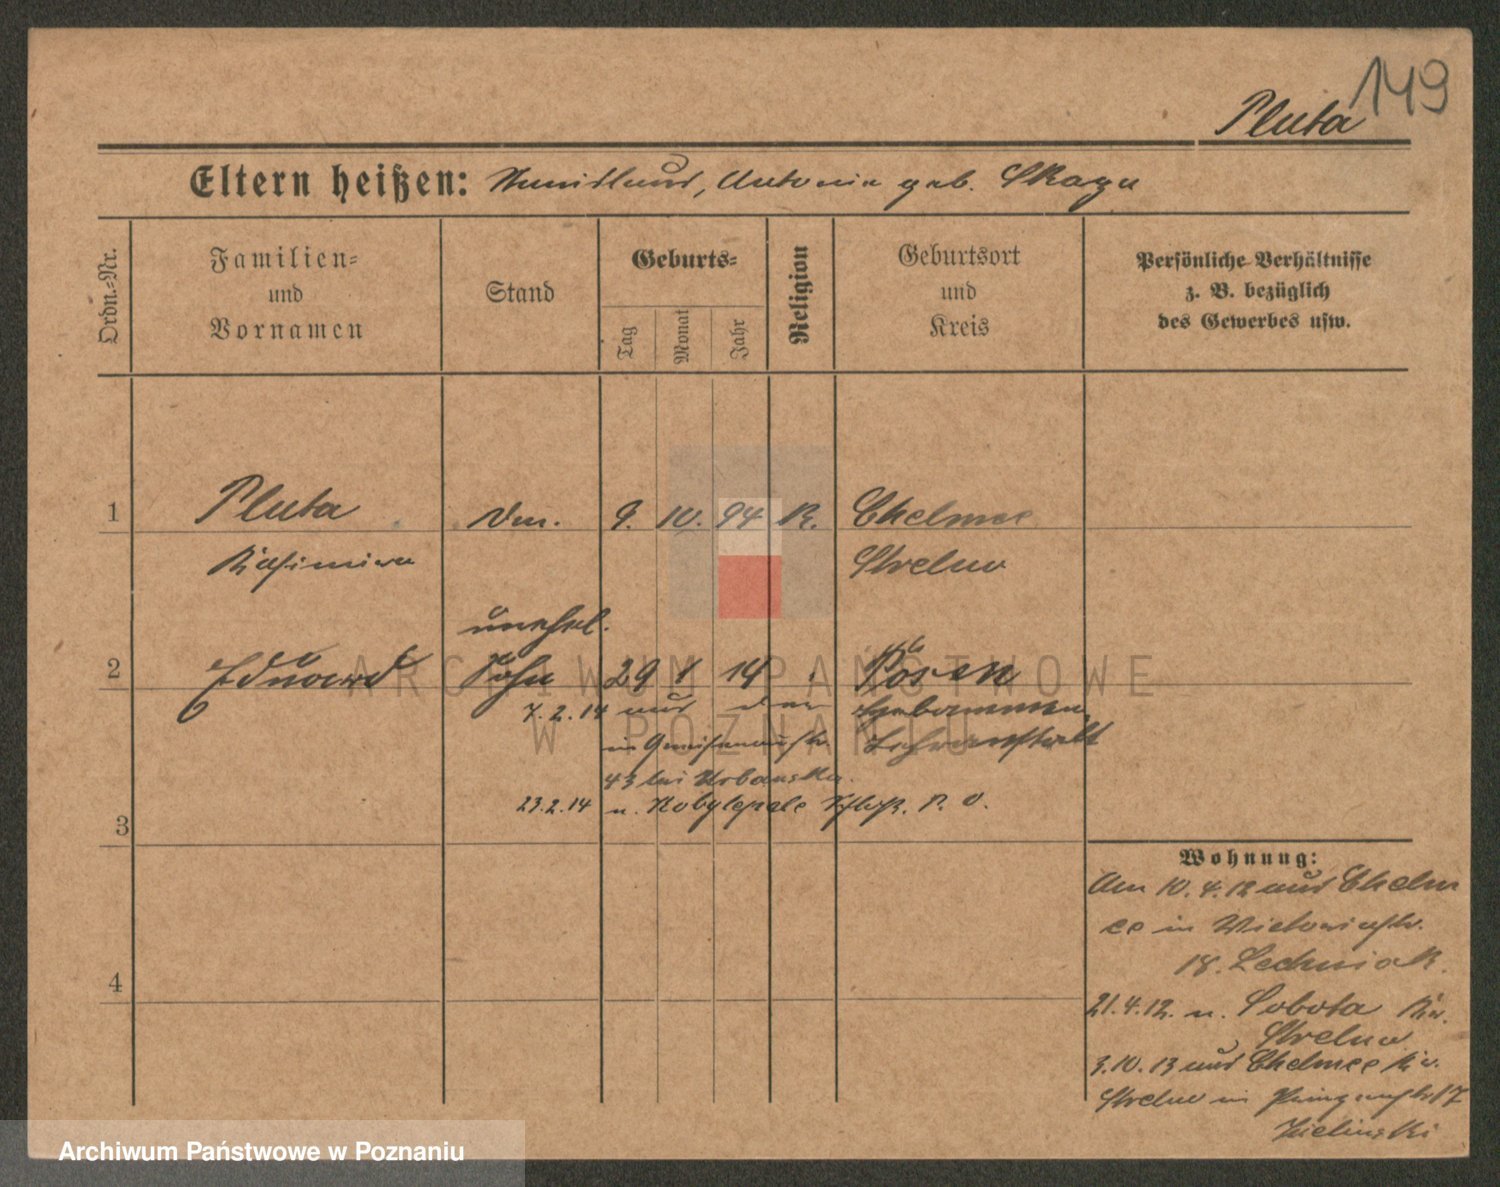 149
Pluta
Eltern heißen: Antonie geb.
Ordn.-Nr.
Familien-
und
Vornamen
Stand
Geburts-
Tag
Monat
Jahr
Religion
Geburtsort
und
Kreis
Persönliche Verhältnisse
z. B. bezüglich
des Gewerbes usw.
1 Pluta 9. 10. 94 K. Chelmce
Kasimira Strelno
unehel.
2 Eduard Sohn 29 1 14 Posen
7.2.14 aus der Hebammen
in Gneisenaustr. Lehranstalt
43 bei Urbanska.
23.2.14 n. Kobylepole P. O.
3
4
Wohnung:
Am 10. 4. 12 aus Chelm
ce in Victoriastr.
18. Lechniak.
21.4.12. n. Sobota Kr.
Strelno
3.10.13 aus Chelmce Kr.
Strelno in 17
Zielinski
ARCHIWUM PAŃSTWOWE
W POZNANIU
Archiwum Państwowe w Poznaniu